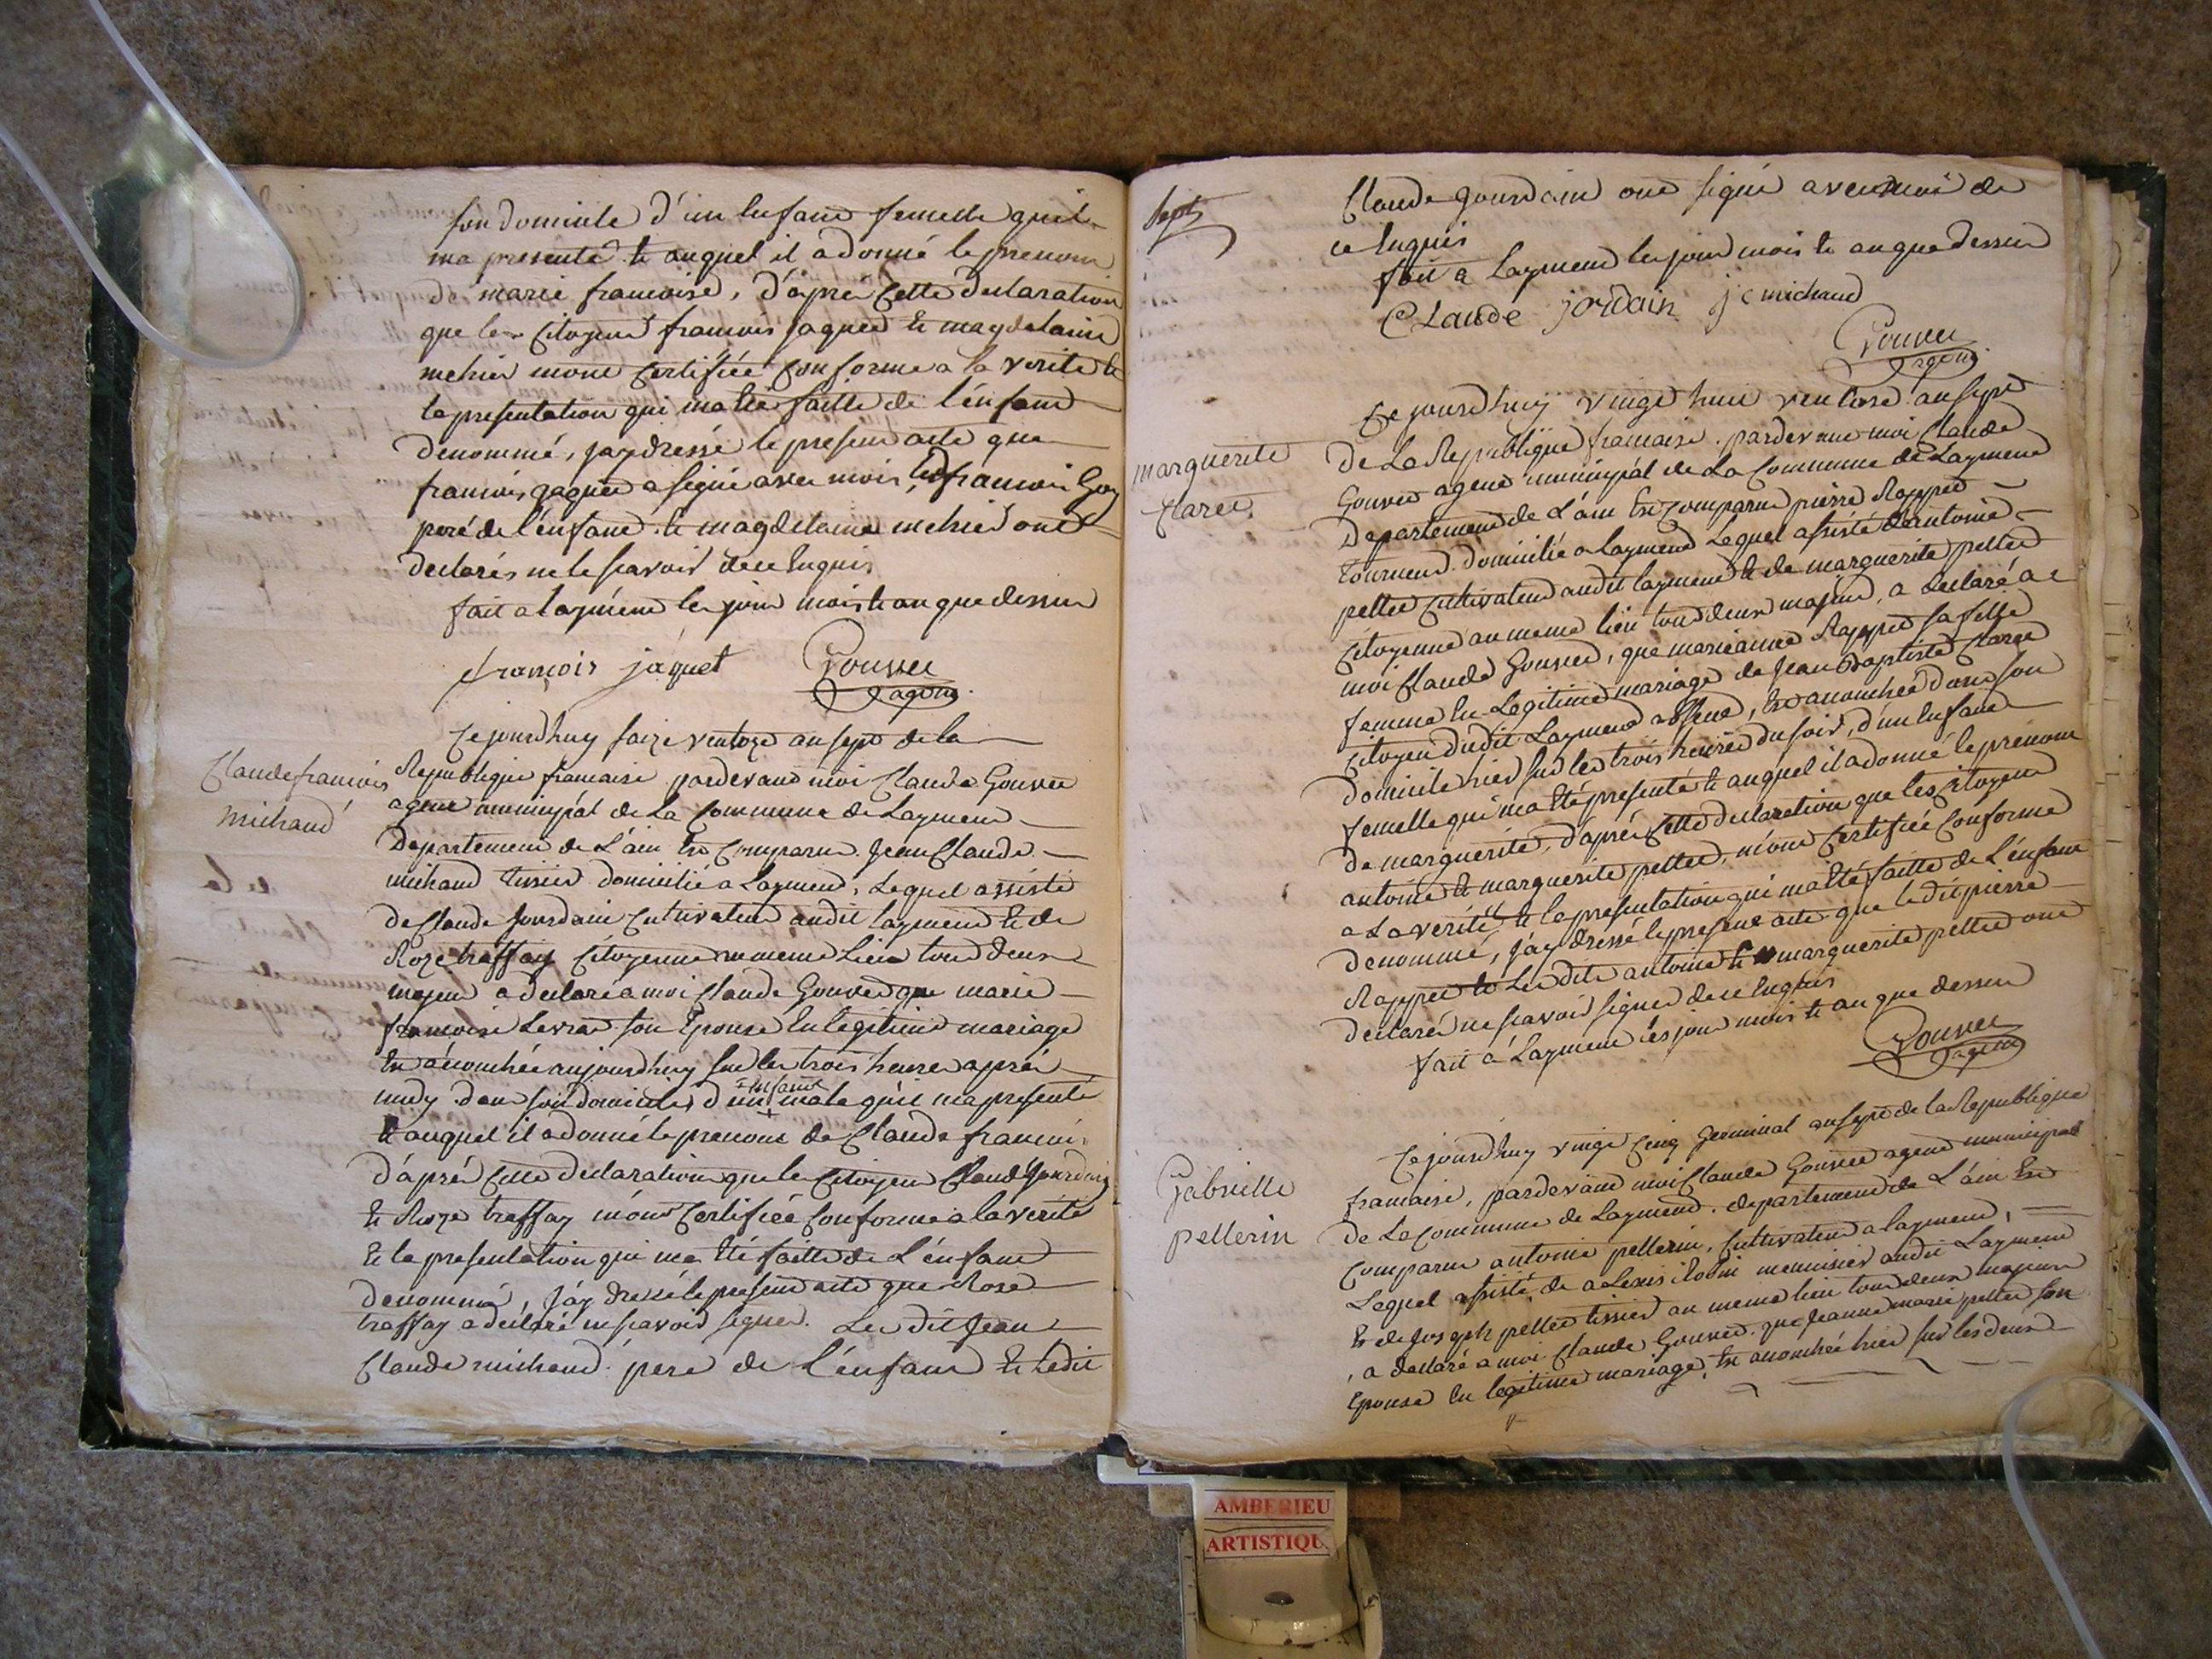 son domicile d'un enfant femelle quil
ma presenté et auquel il a donné le prenom
de marie francoise, d'apres cette declaration
que les Citoyens francois jaquet et magdelaine
mehier mont certifiée conforme a la verité et
la presentation qui ma été faitte de l'énfant
denommé, jay dressé le present acte que
francois jaquet a signé avec moi, led francois Guy
peré de l'énfant et magdelaine mehier ont
declarés ne le scavoir de ce Enquis
fait a laymend les jour mois et an que dessus
francoir jaquet Gouvet
agent
Claude francois
michaud
Ce jourdhuy saize ventoze an sept de la
Republique francaise pardevant moi Claude Gouvet
agent municipal de La Commune de Laymend
Departement de L'ain Est Comparu Jean Claude
michaud tissier domicilié a Laymend, Lequel assisté
de Claude Jourdain Cultivateur audit laymend et de
Roze traffay Citoyenne au meme Lieu tout deux
majeur a declaré a moi Claude Gouvet que marie
francoise Levrat son Epouse En legitime mariage
Est acouchée aujourdhuy sur les trois heures aprés
midy dans son domicile d'un enfant male qu'il ma presenté
Et auquel il a donné le prenom de Claude francois
d'aprés cette declaration que les Citoyens Claude Jourdain
Et Roze traffay m'ont Certifiée Conforme a la vérité
Et la presentation qui ma Eté faitte de L'énfant
denommé, J'ay dressé le present acte que Rose
traffay a déclaré ne scavoir signer. Les dit Jean
Claude michaud pere de L'énfant Et ledit
Sept
Claude Jourdain ont signé avec moi de
ce Enquis
fait a Laymend les jour mois et an que dessus
CLaude jordain j c michaud
Gouvet
agent
marguerite
Claree
Ce jourdhuy vingt huit ventose an sept
De La Republique francaise pardevant moi Claude
Gouvet agent municipal de La Commune de Laymend
Departement de L'ain Est Comparu pierre Rappet
tourneur domicilié a Laymend Lequel assisté d'antoine
pellet Cultivateur audit laymend Et de marguerite pellet
Citoyenne au meme lieu tout deux majeur, a declaré a
moi Claude Gouvet, que marianne Rappet sa fille
femme En Legitime mariage de Jean Baptiste Claree
Citoyen dudit Laymend absent, Est acouchée dans son
domicile hier sur les trois heures du soir, d'un Enfant
femelle qui m'a Eté presenté Et auquel il a donné le prenom
de marguerite, d'aprés Cette declaration que les Citoyens
antoine Et marguerite pellet, m'ont Certifiée Conforme
a La verité, Et la presentation qui ma Eté faitte de L'énfant
denommé, J'ay dressé le present acte que ledit pierre
Rappet Et Les dits antoine Et marguerite pellet ont
declarés ne scavoir signer de ce Enquis
fait a Laymend les jour mois Et an que dessus
Gouvet
agent
Gabrielle
pellerin
Ce jourdhuy vingt Cinq Germinal an sept de la Republique
francaise, pardevant moi Claude Gouvet agent municipal
de La Commune de Laymend, departement de L'ain Est
Comparu antoine pellerin, Cultivateur a laymend,
Lequel assisté de alexis Robin menuisier audit Laymend
Et de Joseph pellet tissier au meme lieu tout deux majeurs
, a declaré a moi Claude Gouvet que Jeanne marie pellet son
Epouse En legitime mariage, Est acouchée hier sur les deux
AMBERIEU
ARTISTIQU